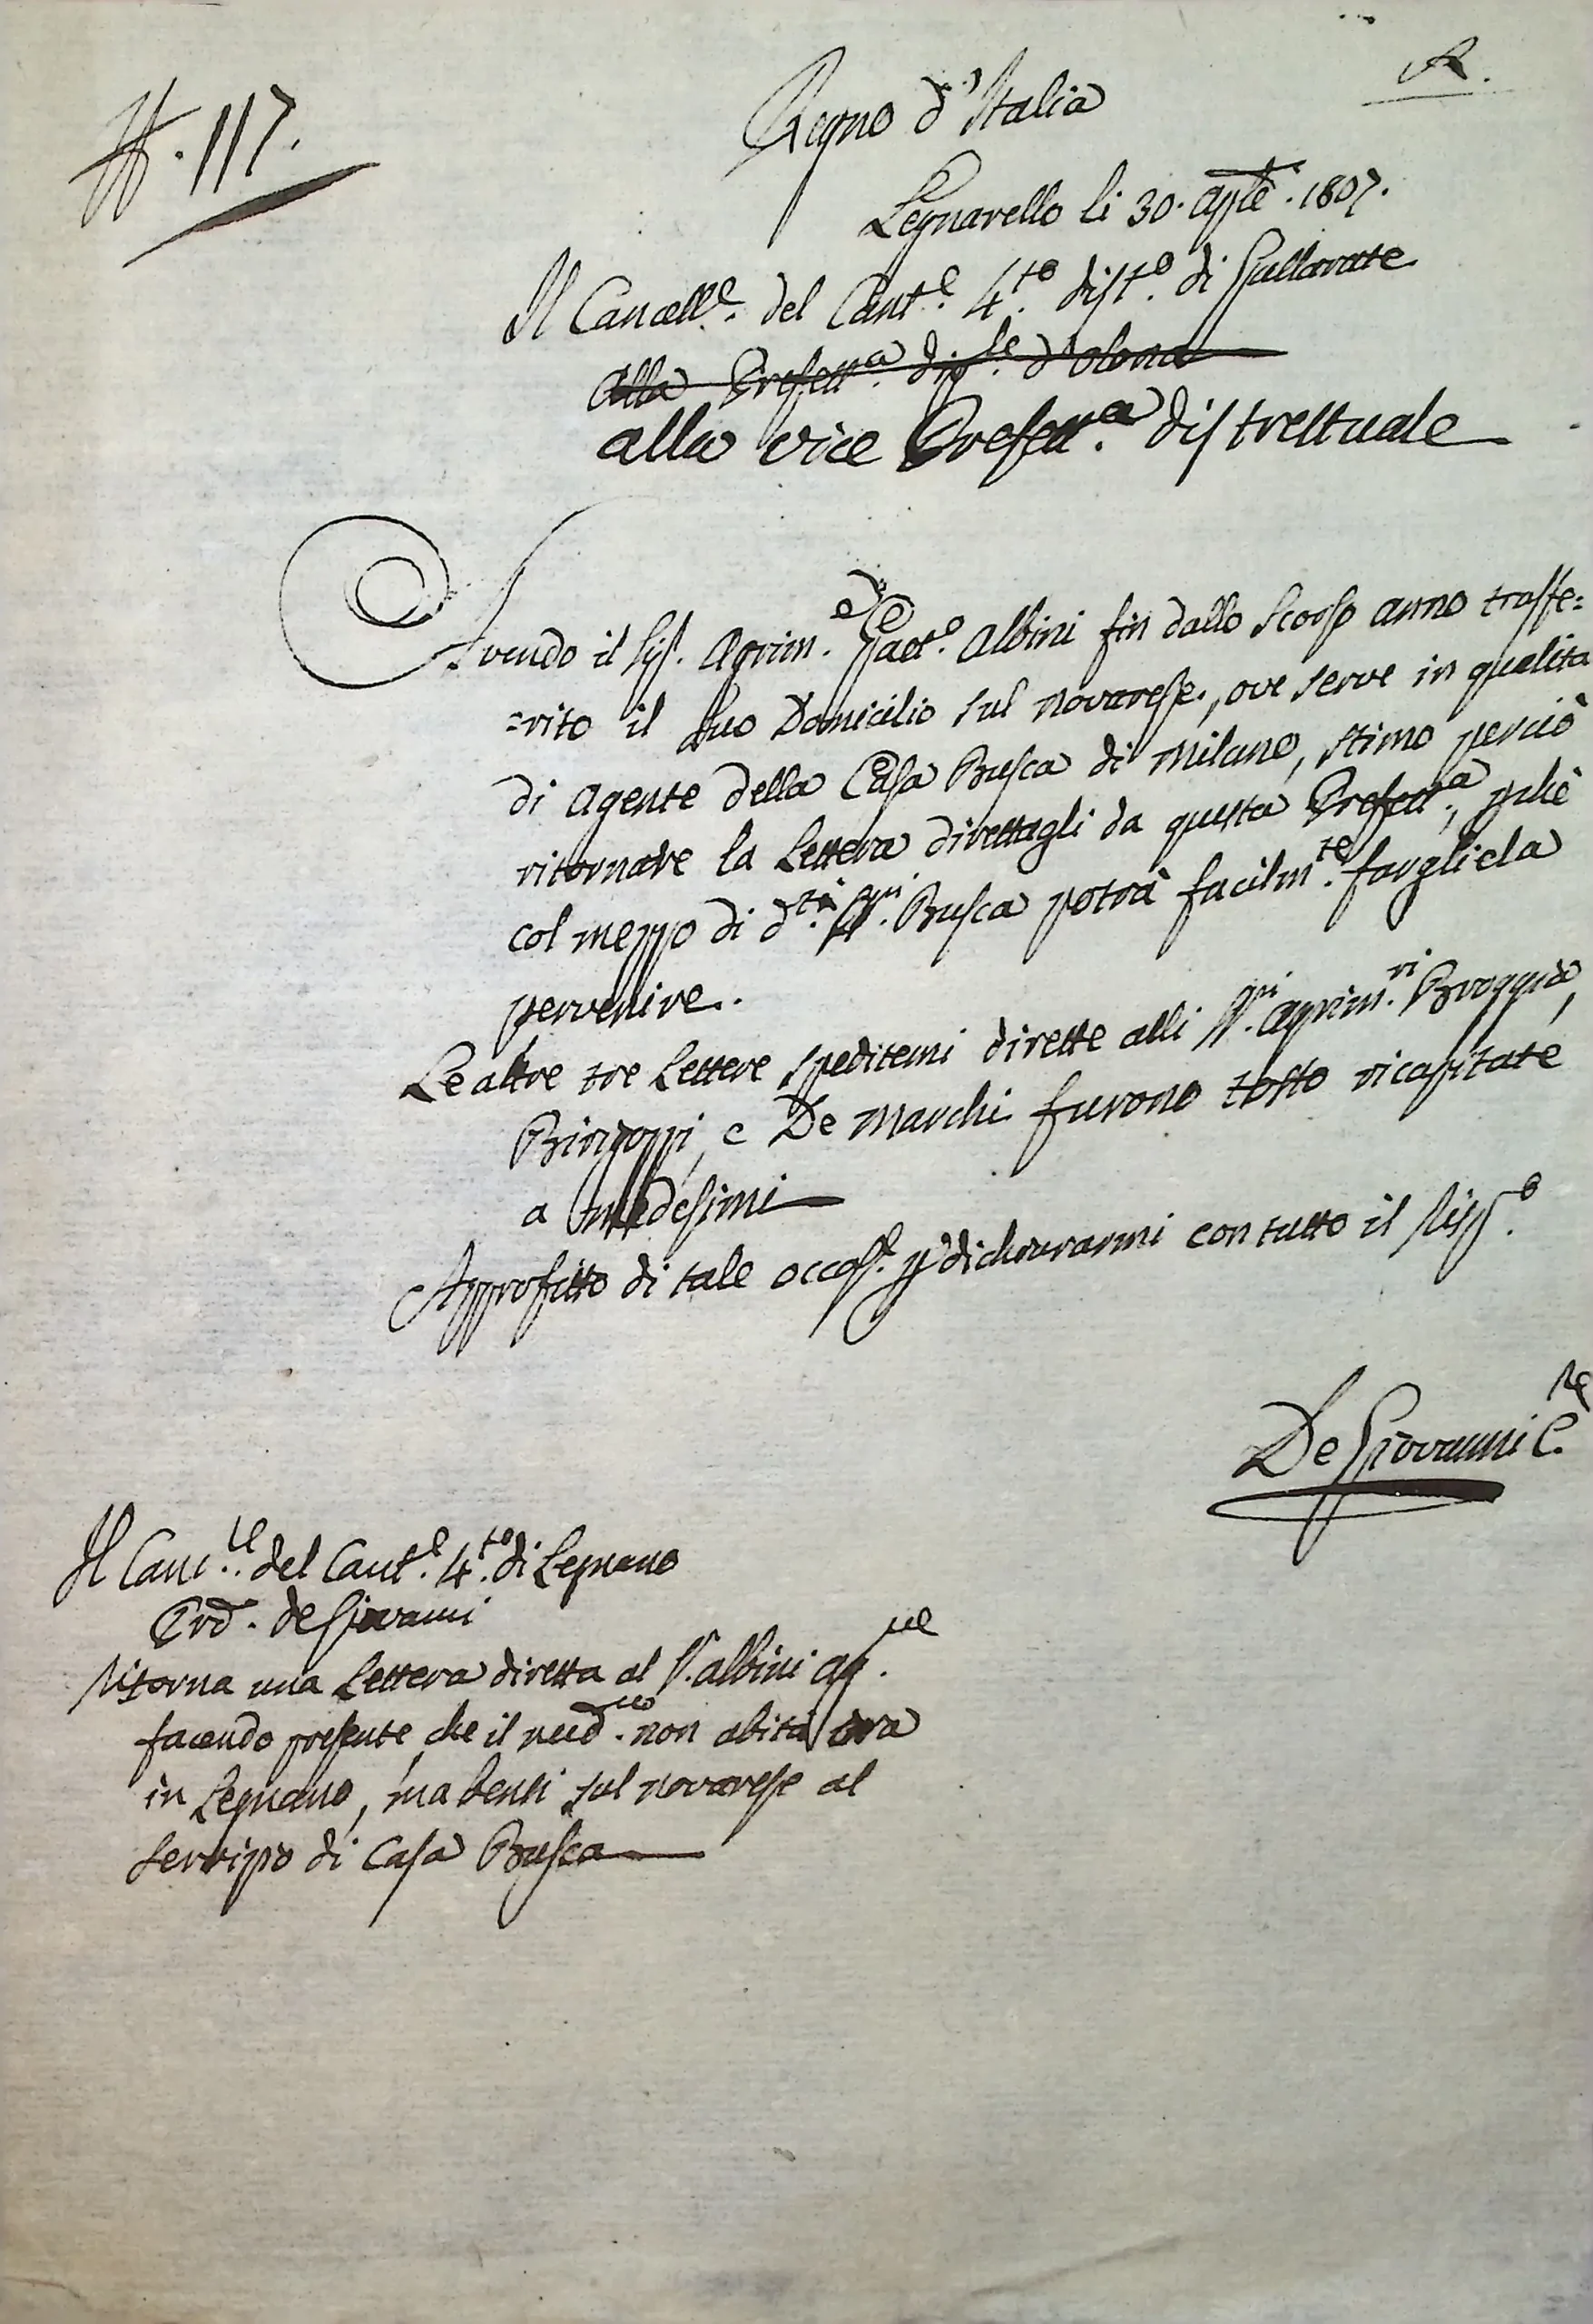 N. 117.
R.
Regno d'Italia
Legnarello li 30. aple. 1807.
Il Cancell.e del Cant.e 4.to dist.o di Gallarate
alla Prefett.a dip.le d'Olona
alla vice Prefett.a distrettuale
Avendo il Sig. Agrim.e Gaet.o Albini fin dallo scorso anno trasfe=
=rito il suo Domicilio sul novarese, ove serve in qualità
di Agente della Casa Busca di Milano, stimo perciò
ritornare la Lettera direttagli da questa Prefett.a, pchè
col mezzo di d.ti SS.ri Busca potrà facilm.te fargliela
pervenire.
Le altre tre Lettere speditemi dirette alli SS.ri Agrim.ri Broggia,
e De Marchi furono tosto ricapitate
a medesimi
Approfitto di tale occas.e p dichiararmi con tutto il risp.o
De Giovanni C.re
Il Canc.le del Cant.e 4.to di Legnano
de Giovanni
Ritorna una Lettera diretta al S.r Albini
facendo presente, che il med.mo non abita ora
in Legnano, ma bensi sul novarese al
servizio di Casa Busca